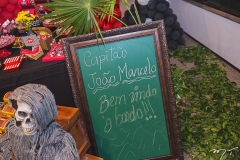 Capitão
João Marcelo
Bem vindo
à bordo!!!